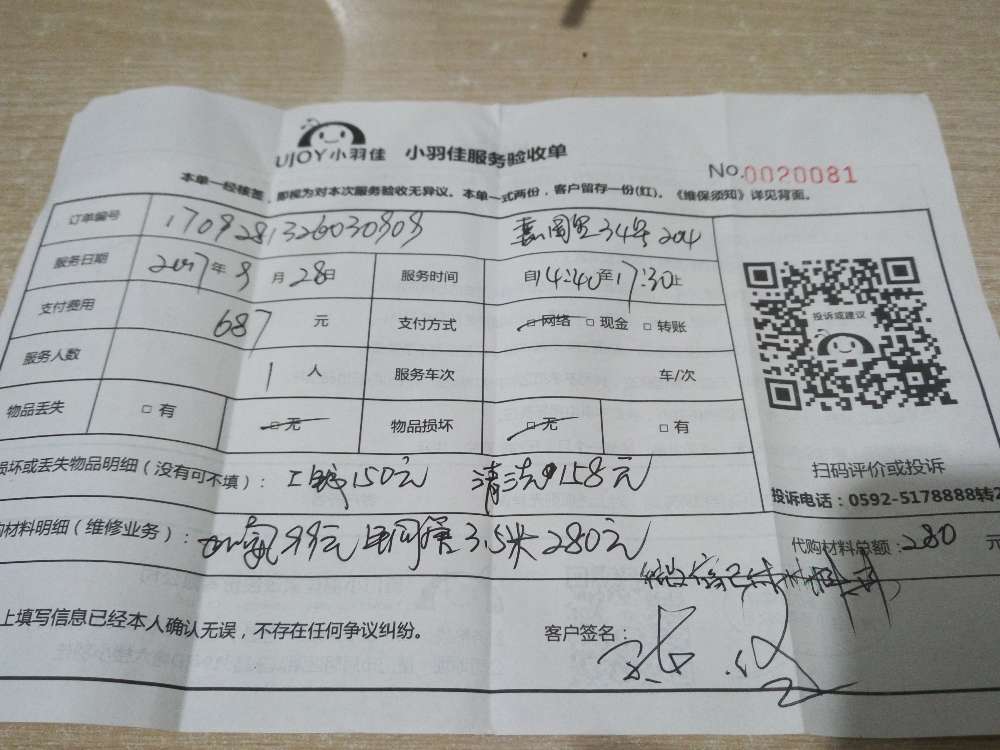 UJOY小羽佳 小羽佳服务验收单
No.0020081
本单一经核签,即视为对本次服务验收无异议。本单一式两份,客户留存一份(红)。《维保须知》详见背面。
订单编号 34号204
服务日期 2017年9月28日 服务时间 自14:40至17:30止
支付费用 687元 支付方式 □网络 □现金 □转账
投诉或建议
服务人数 1人 服务车次 车/次
物品丢失 □有 □无 物品损坏 □无 □有
损坏或丢失物品明细(没有可不填): 150元 清洗158元
扫码评价或投诉
投诉电话:0592-5178888转2
购材料明细(维修业务): 加氟99元 3.5米280元
代购材料总额:280元
上填写信息已经本人确认无误,不存在任何争议纠纷。
客户签名: